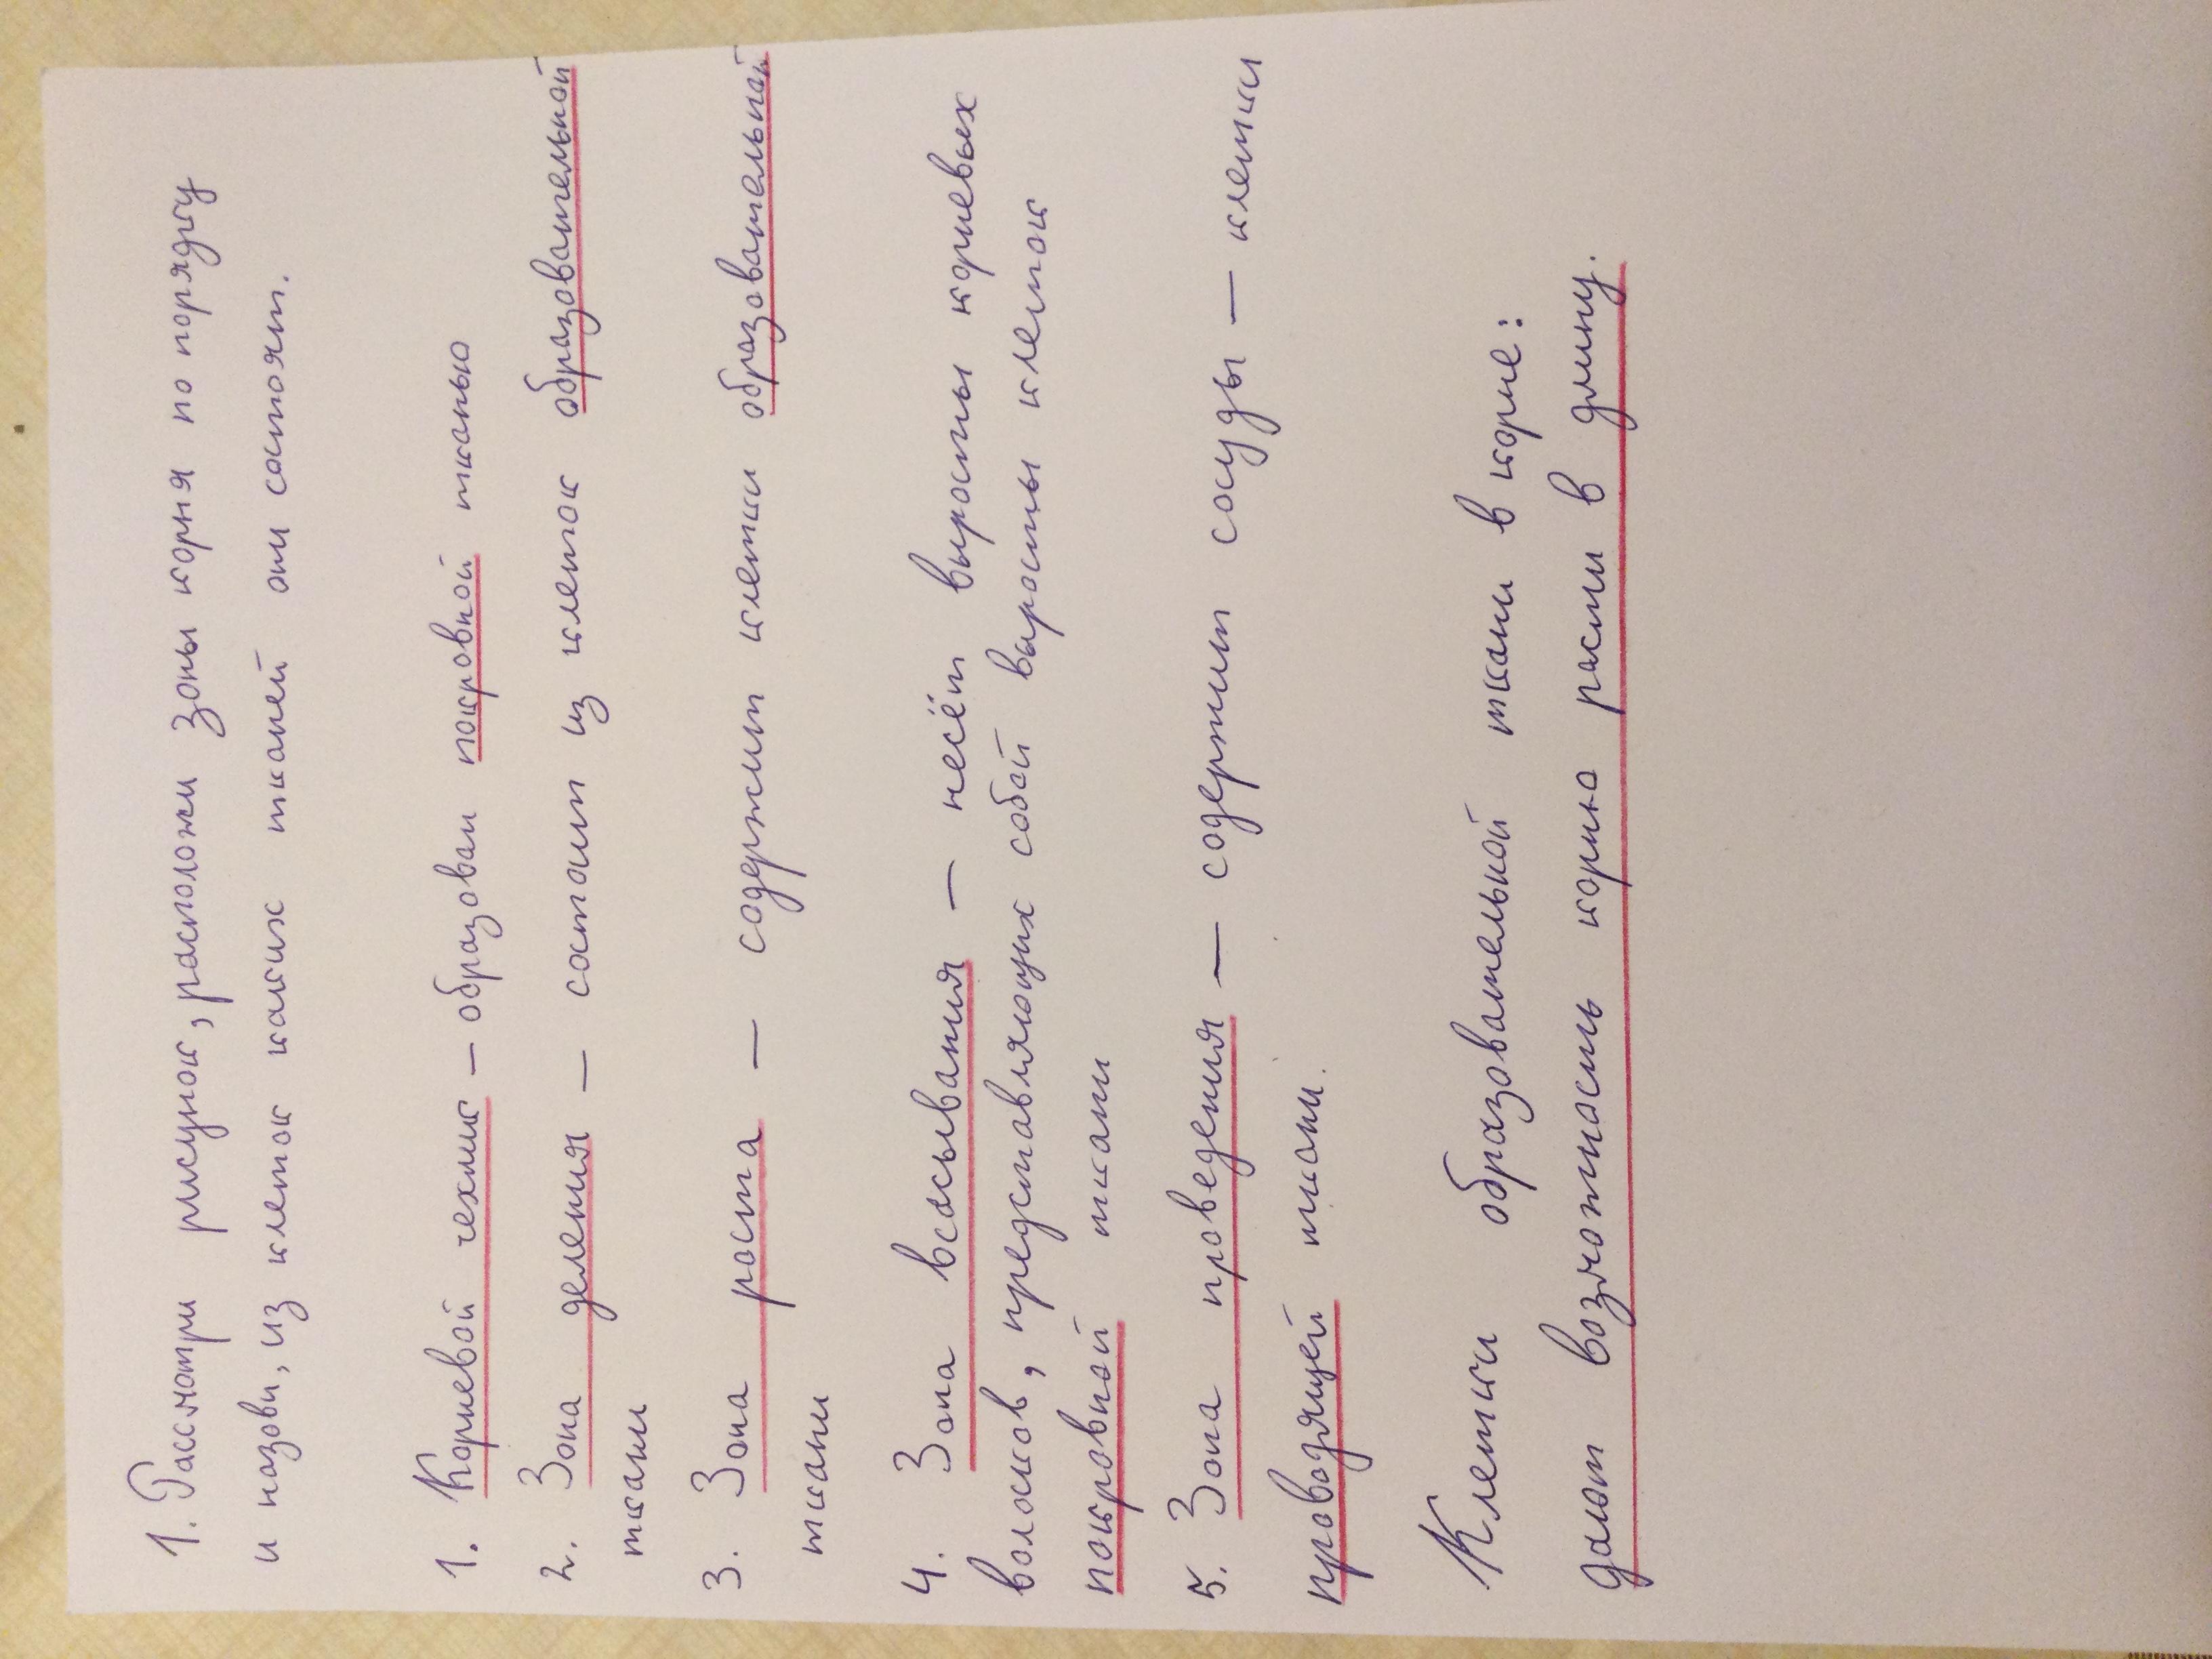 1. Рассмотри рисунок, расположи зоны корня по порядку
и назови, из клеток каких тканей они состоят.
1. Корневой чехлик – образован покровной тканью
2. Зона деления – состоит из клеток образовательной
ткани
3. Зона роста – содержит клетки образовательной
ткани
4. Зона всасывания – несёт выросты корневых
волосков, представляющих собой выросты клеток
покровной ткани
5. Зона проведения – содержит сосуды – клетки
проводящей ткани.
Клетки образовательной ткани в корне:
дают возможность корню расти в длину.